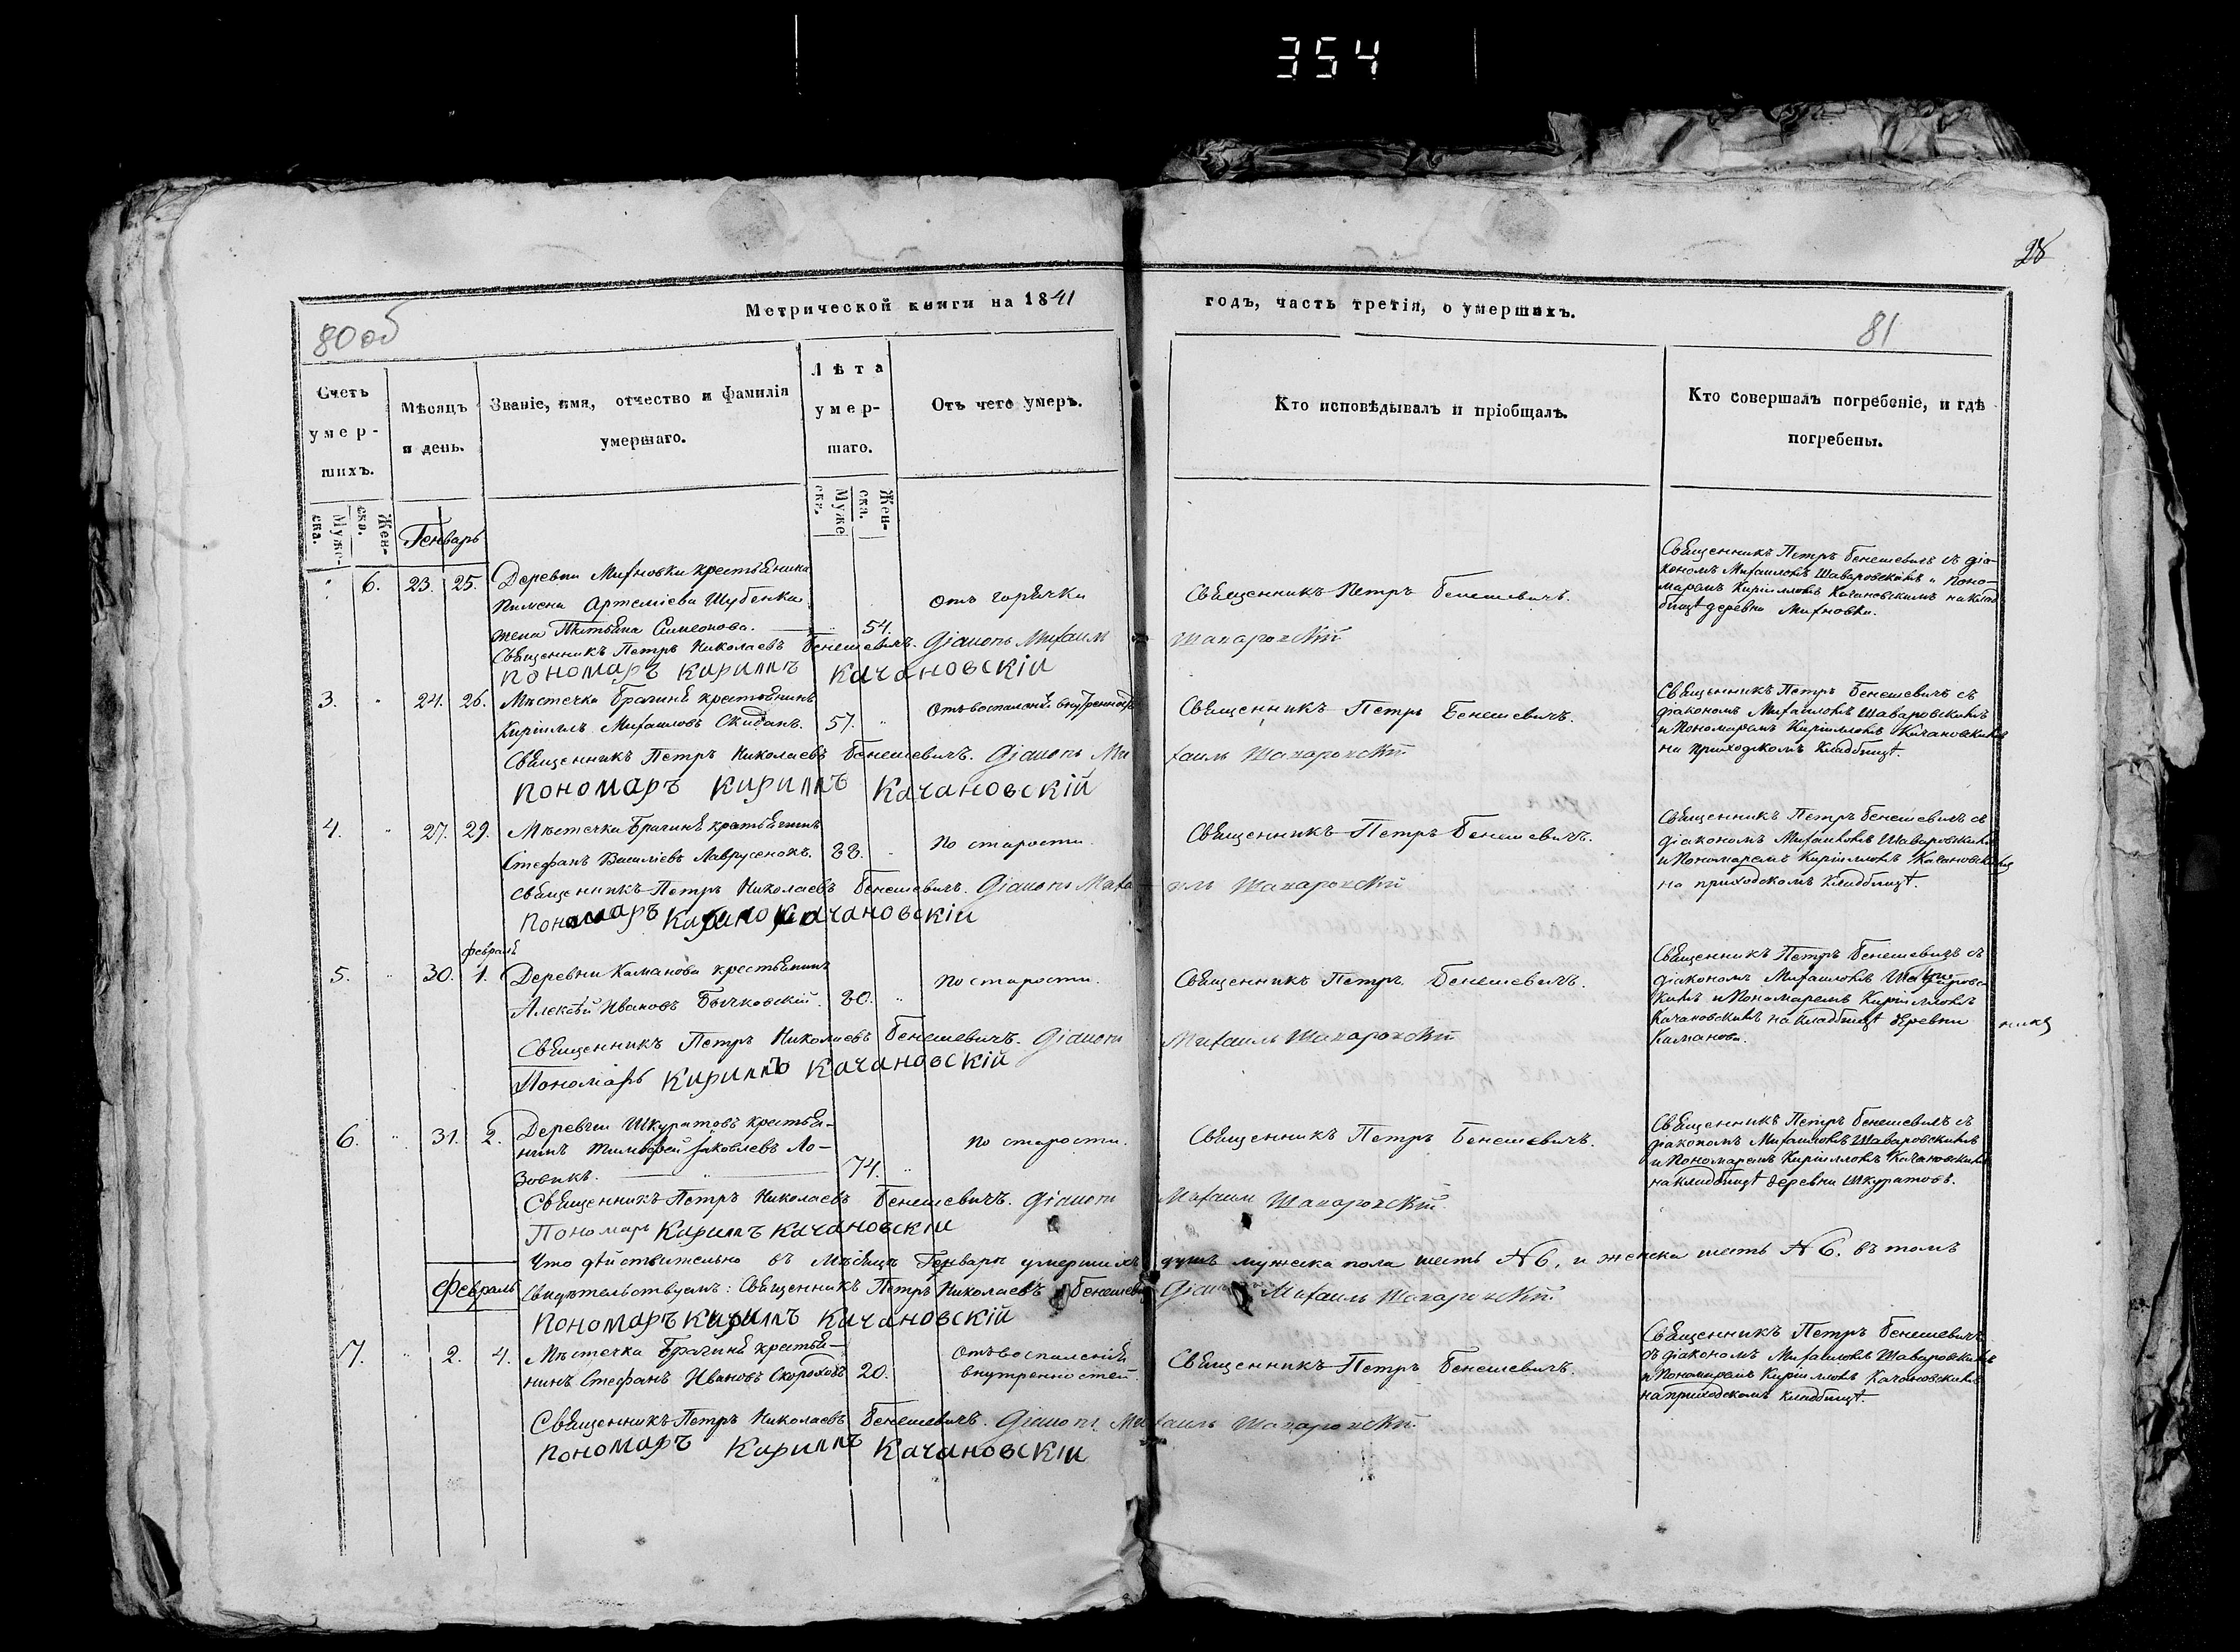 354
28
Метрической книги на 1841 годъ, часть третія, о умершихъ.
80 об
81
Счетъ умершихъ.
Мѣсяцъ и день.
Званіе, имя, отчество и фамилія умершаго.
Лѣта умершаго.
Отъ чего умеръ.
Кто исповѣдывалъ и пріобщалъ.
Кто совершалъ погребеніе, и гдѣ погребены.
Мужеска.
Женска.
Муже ска.
Женска.
Генварь
6. 23. 25. Деревни Михновки крестьянина
Пимена Артеміева Шубенка
жена Татьяна Симеонова. 54.
отъ горячки
Священникъ Петръ Бенешевичъ.
Священникъ Петръ Бенешевичъ съ діа-
кономъ Михаиломъ Шаваровскимъ и Поно-
маремъ Кирилломъ Качановскимъ на клад-
бищѣ деревни Михновки.
Священникъ Петръ Николаевъ Бенешевичъ. Діаконъ Михаилъ Шаваровскій
Пономаръ Кириллъ Качановскій
3. 24. 26. Мѣстечка Брагиня крестьянинъ
Кириллъ Михаиловъ Скиданъ. 57.
Отъ воспаленія внутренностей
Священникъ Петръ Бенешевичъ.
Священникъ Петръ Бенешевичъ съ
діакономъ Михаиломъ Шаваровскимъ
и Пономаремъ Кирилломъ Качановскимъ
на приходскомъ кладбищѣ.
Священникъ Петръ Николаевъ Бенешевичъ. Діаконъ Михаилъ Шаваровскій
Пономаръ Кириллъ Качановскій
4. 27. 29. Мѣстечка Брагиня крестьянинъ
Стефанъ Василіевъ Лаврусенокъ. 88.
По старости.
Священникъ Петръ Бенешевичъ.
Священникъ Петръ Бенешевичъ съ
діакономъ Михаиломъ Шаваровскимъ
и Пономаремъ Кирилломъ Качановскимъ
на приходскомъ кладбищѣ.
Священникъ Петръ Николаевъ Бенешевичъ. Діаконъ Михаилъ Шаваровскій
Пономаръ Качановскій
февраля
5. 30. 1. Деревни Команова крестьянинъ
Алексѣй Ивановъ Бычковскій. 80.
По старости.
Священникъ Петръ Бенешевичъ.
Священникъ Петръ Бенешевичъ съ
діакономъ Михаиломъ Шаваровс
кимъ и Пономаремъ Кирилломъ
Качановскимъ на кладбищѣ деревни
Команова.
Священникъ Петръ Николаевъ Бенешевичъ. Діаконъ Михаилъ Шаваровскій
Пономарь Кириллъ Качановскій
6. 31. 2. Деревни Шкуратовъ крестья-
нинъ Тимофей Іаковлевъ Ло-
зовикъ. 74.
По старости.
Священникъ Петръ Бенешевичъ.
Священникъ Петръ Бенешевичъ съ
діакономъ Михаиломъ Шаваровскимъ
и Пономаремъ Кирилломъ Качановскимъ
на кладбищѣ деревни Шкуратовъ.
Священникъ Петръ Николаевъ Бенешевичъ. Діаконъ Михаилъ Шаваровскій
Пономаръ Кириллъ Качановскій
Что дѣйствительно въ мѣсяцѣ Генварѣ умершихъ душъ мужеска пола шесть № 6, и женска шесть № 6. въ томъ
Февраль
Свидѣтельствуемъ: Священникъ Петръ Николаевъ Бенешевичъ Діаконъ Михаилъ Шаваровскій
Пономаръ Кириллъ Качановскій
7. 2. 4. Мѣстечка Брагиня крестья-
нинъ Стефанъ Ивановъ Скороходъ 20.
Отъ воспаленія
внутренностей.
Священникъ Петръ Бенешевичъ.
Священникъ Петръ Бенешевичъ
съ діакономъ Михаиломъ Шаваровскимъ
и Пономаремъ Кирилломъ Качановскимъ
на приходскомъ кладбищѣ.
Священникъ Петръ Николаевъ Бенешевичъ. Діаконъ Михаилъ Шаваровскій
Пономаръ Кириллъ Качановскій